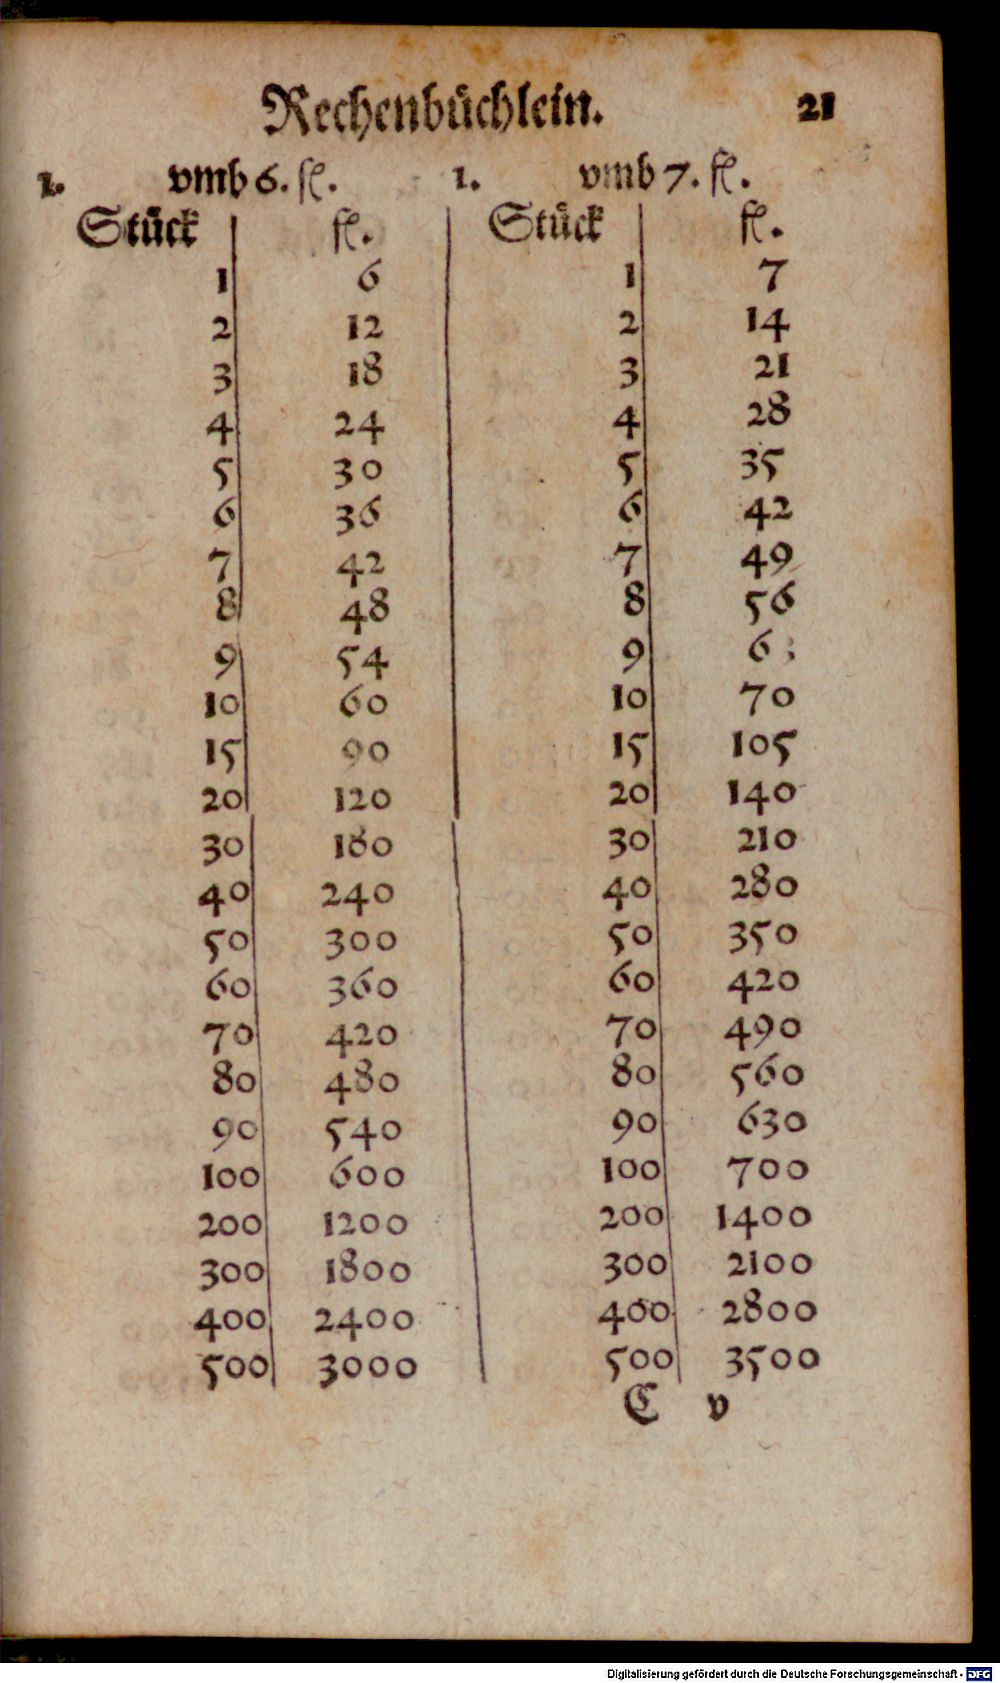 Rechenbüchlein. 21
1. vmb 6. fl. 1. vmb 7. fl.
Stück fl. Stück fl.
1 6 1 7
2 12 2 14
3 18 3 21
4 24 4 28
5 30 5 35
6 36 6 42
7 42 7 49
8 48 8 56
9 54 9 6
10 60 10 70
15 90 15 105
20 120 20 140
30 180 30 210
40 240 40 280
50 300 50 350
60 360 60 420
70 420 70 490
80 480 80 560
90 540 90 630
100 600 100 700
200 1200 200 1400
300 1800 300 2100
400 2400 400 2800
500 3000 500 3500
C v
Digitalisierung gefördert durch die Deutsche Forschungsgemeinschaft - DFG